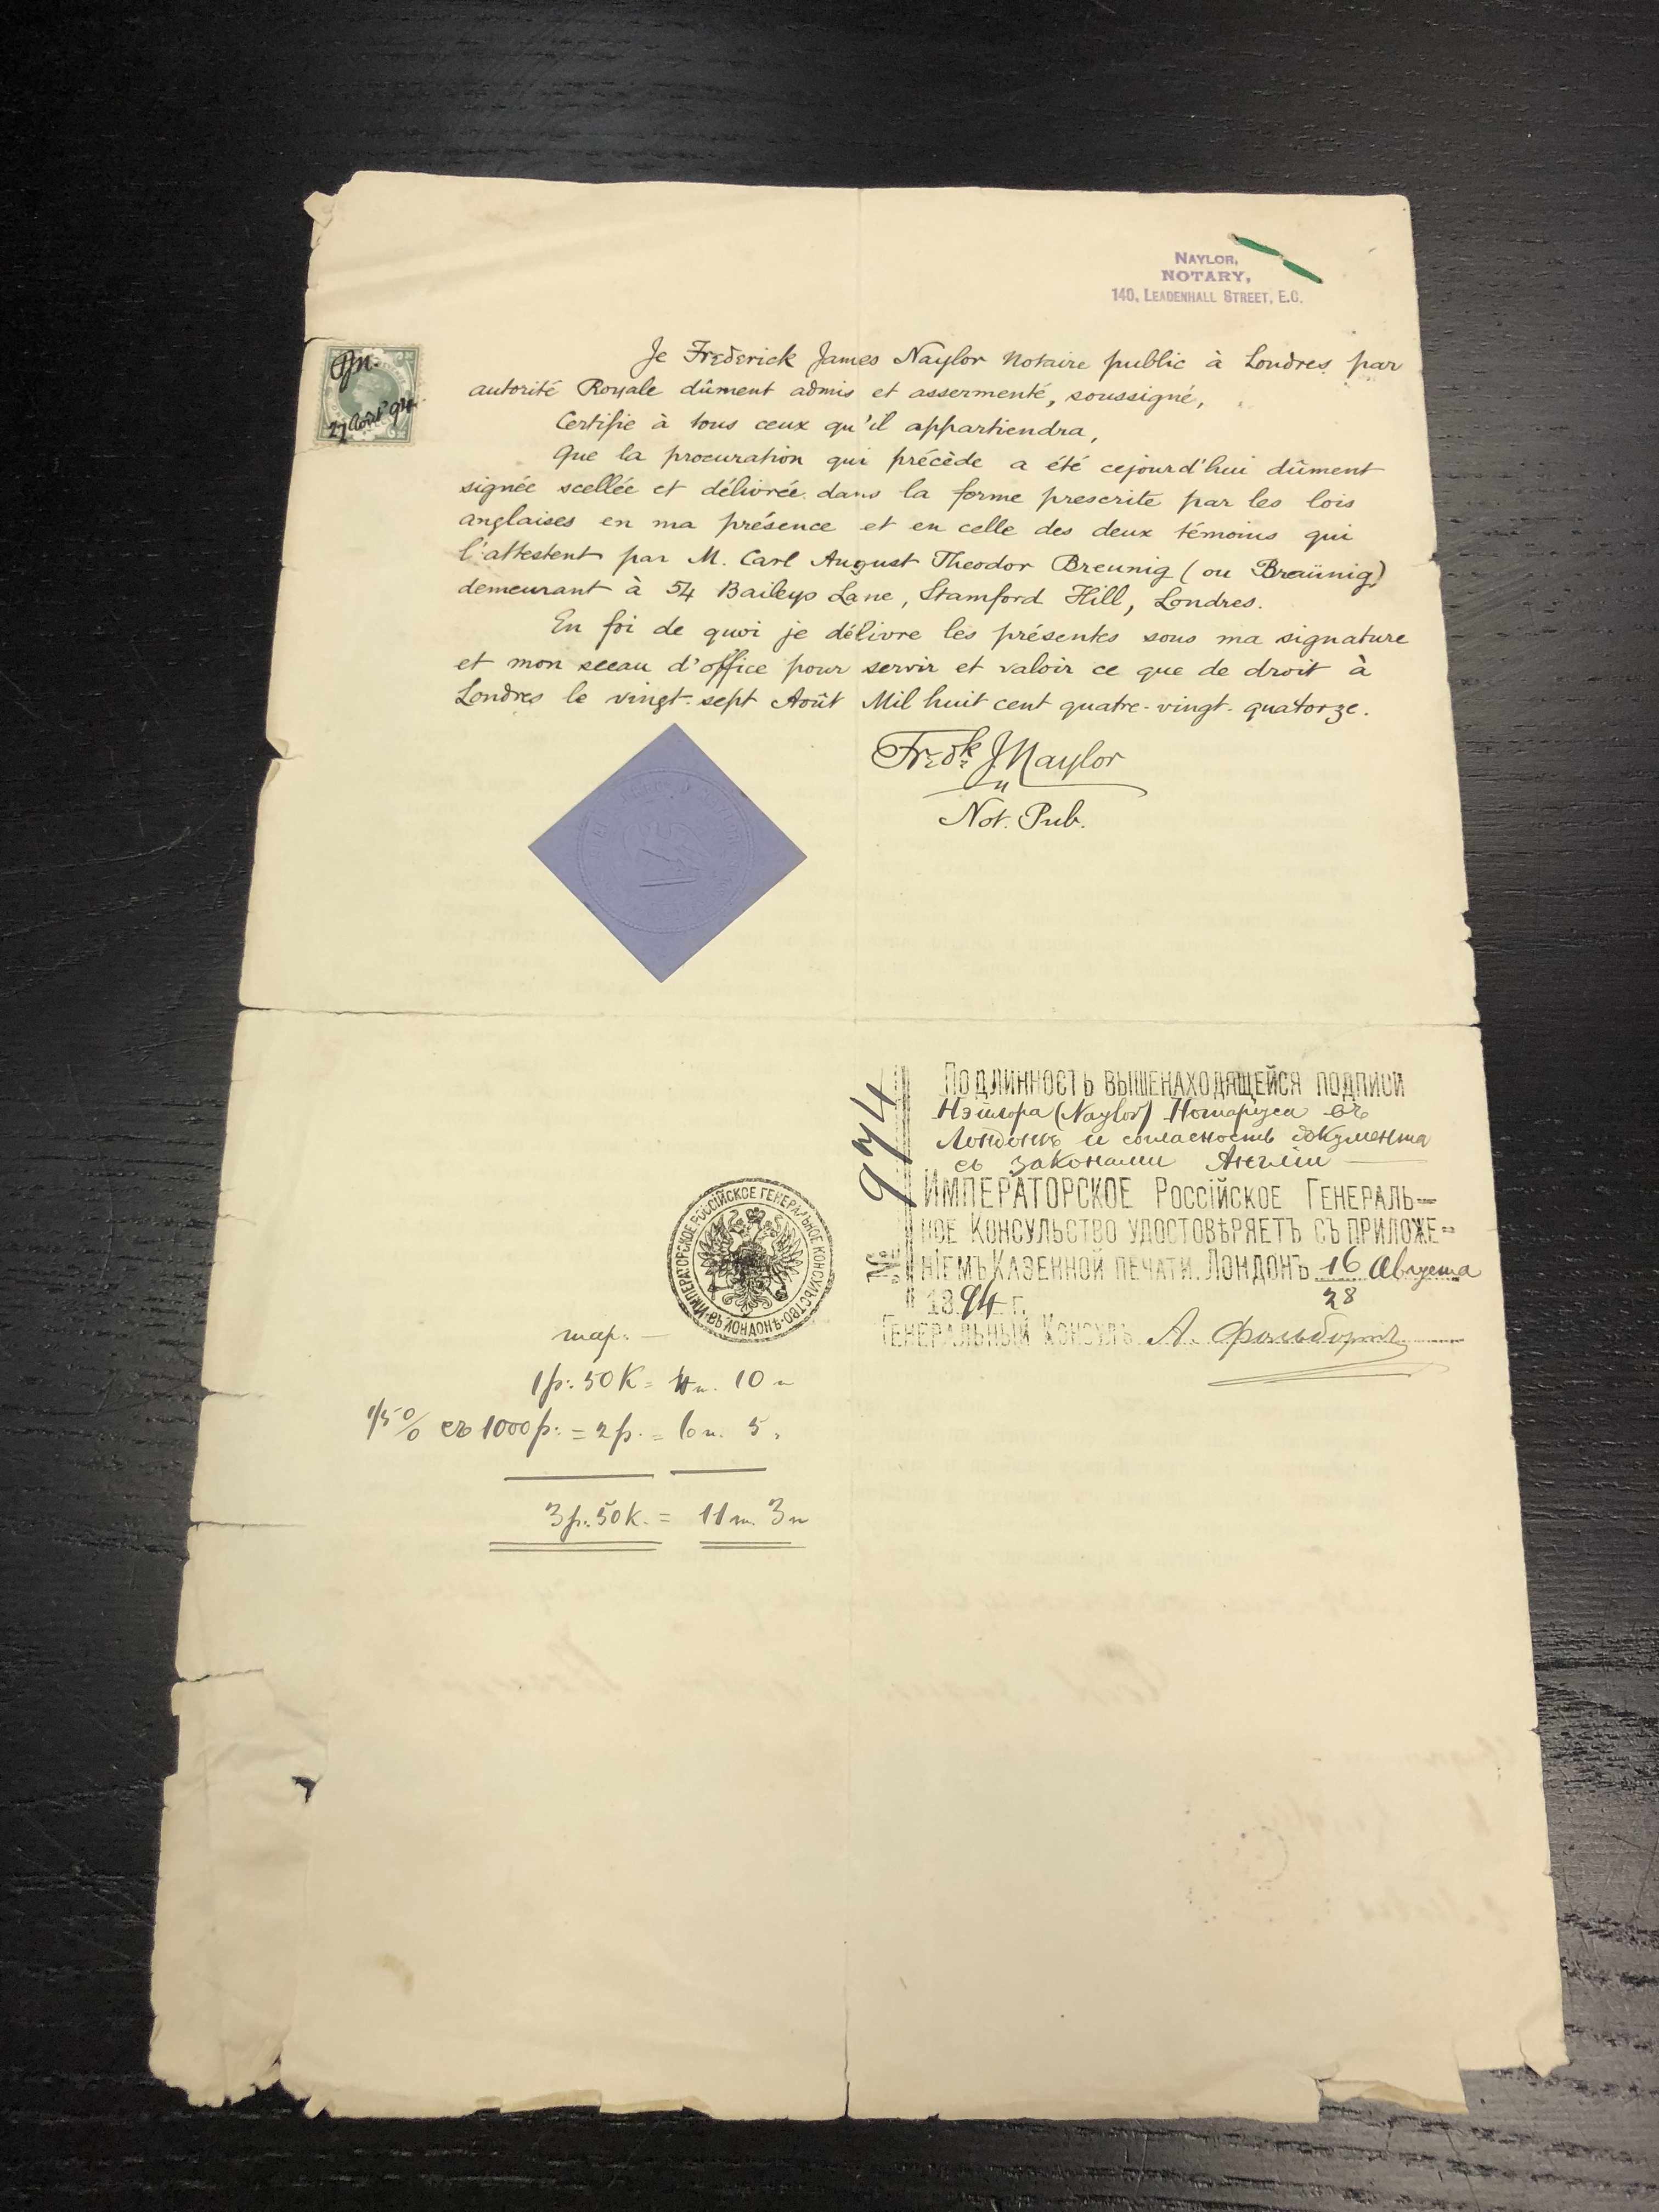 NAYLOR,
NOTARY,
140, LEADENHALL STREET, E.C.
FJN.
27 Août 94
Je Frederick James Naylor Notaire public à Londres par
autorité Royale dûment admis et assermenté, soussigné,
Certifie à tous ceux qu'il appartiendra,
Que la procuration qui précède a été cejourd'hui dûment
signée scellée et délivrée dans la forme prescrite par les lois
anglaises en ma présence et en celle des deux témoins qui
l'attestent par M. Carl August Theodor Breunig (ou Breünig)
demeurant à 54 Baileys Lane, Stamford Hill, Londres.
En foi de quoi je délivre les présentes sous ma signature
et mon sceau d'office pour servir et valoir ce que de droit à
Londres le vingt-sept Août Mil huit cent quatre-vingt-quatorze.
Fredk J. Naylor
Not. Pub.
ПОДЛИННОСТЬ ВЫШЕНАХОДЯЩЕЙСЯ ПОДПИСИ
Нэйлора (Naylor) Нотаріуса въ
Лондонѣ и согласность документа
съ законами Англіи
ИМПЕРАТОРСКОЕ РОССІЙСКОЕ ГЕНЕРАЛЬ=
НОЕ КОНСУЛЬСТВО УДОСТОВѢРЯЕТЪ СЪ ПРИЛОЖЕ=
НІЕМЪ КАЗЕННОЙ ПЕЧАТИ. ЛОНДОНЪ 16 Августа
28
1894 г.
ГЕНЕРАЛЬНЫЙ КОНСУЛЪ А. Фольбортъ
№ 974
ИМПЕРАТОРСКОЕ РОССІЙСКОЕ ГЕНЕРАЛЬНОЕ КОНСУЛЬСТВО ВЪ ЛОНДОНѢ
тар.
1 р. 50 К = 4 ш. 10 п
1/5 % съ 1000 р. = 2 р. = 6 ш. 5
3 р. 50 К. = 11 ш. 3 п